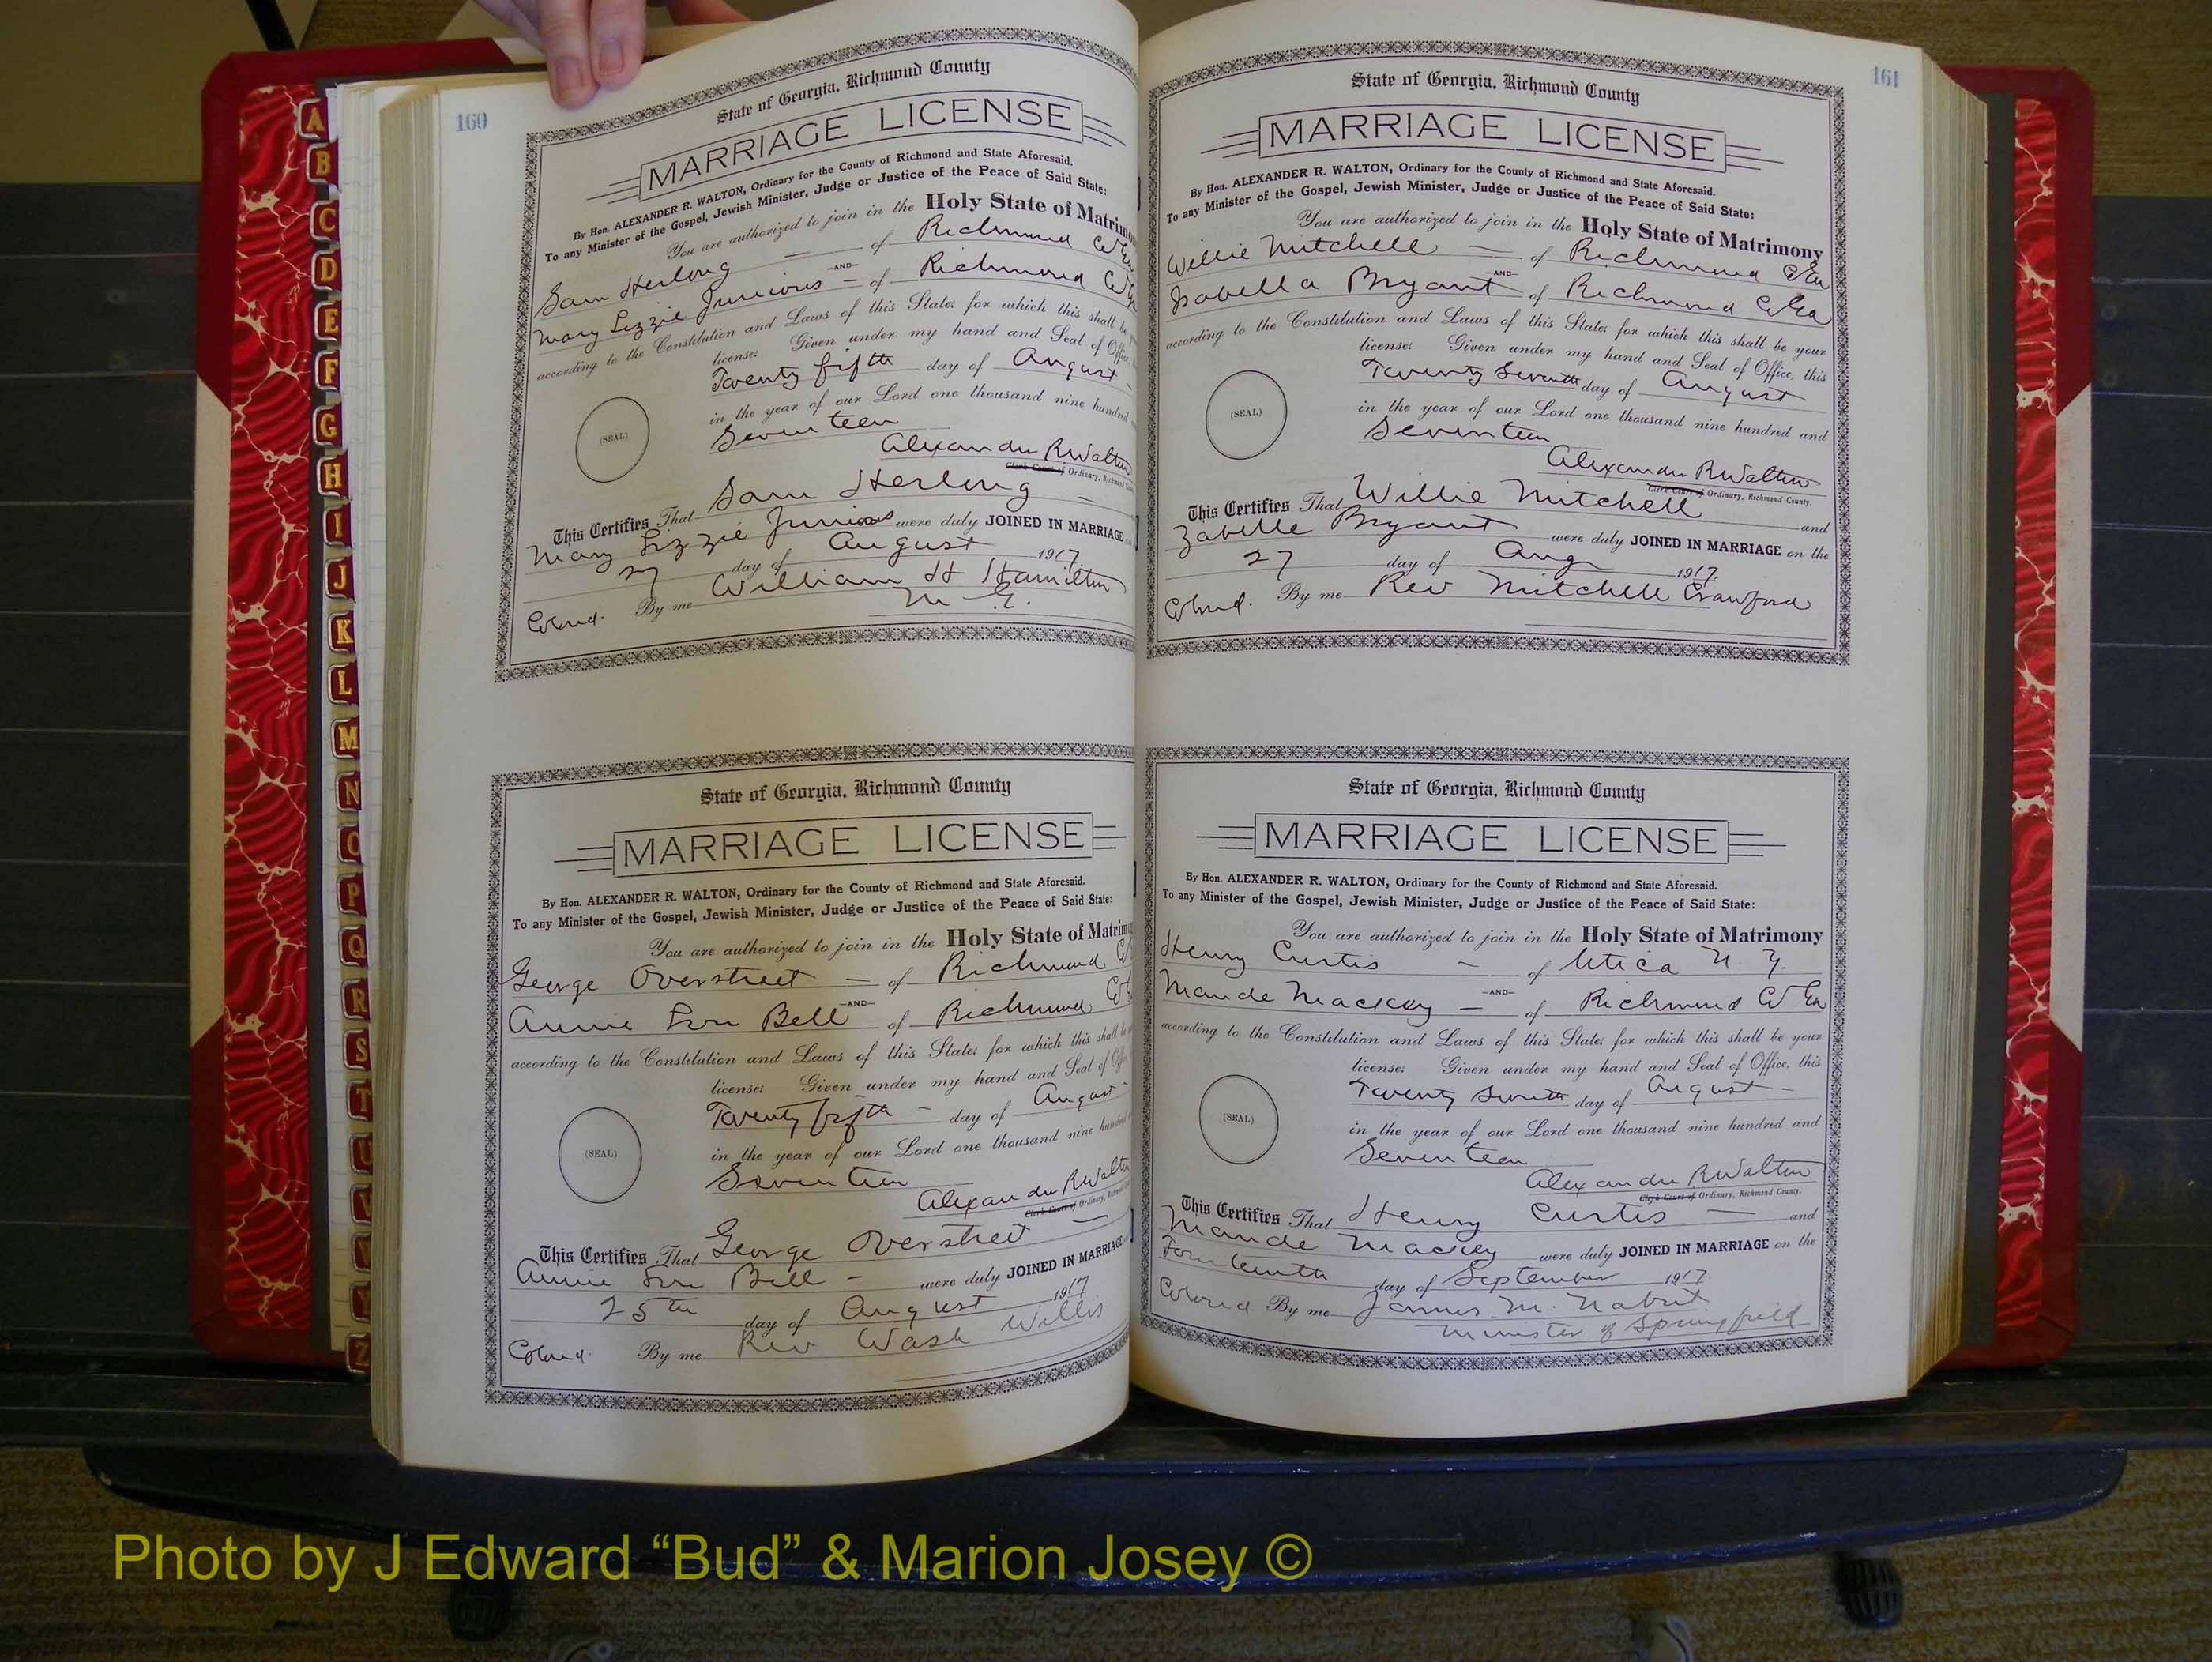 160
State of Georgia, Richmond County
MARRIAGE LICENSE
By Hon. ALEXANDER R. WALTON, Ordinary for the County of Richmond and State Aforesaid.
To any Minister of the Gospel, Jewish Minister, Judge or Justice of the Peace of Said State:
You are authorized to join in the Holy State of Matrimony
Sam Herlong — of Richmond Co Ga
—AND—
Mary Lizzie Junious — of Richmond Co Ga
according to the Constitution and Laws of this State; for which this shall be
license: Given under my hand and Seal of Office,
Twenty fifth day of August —
(SEAL)
in the year of our Lord one thousand nine hundred
Seventeen
Alexander R Walton
Clerk Court of Ordinary, Richmond County
This Certifies That Sam Herlong —
Mary Lizzie Junious were duly JOINED IN MARRIAGE
27 day of August 1917
Colored. By me William H Hamilton
M. G.
State of Georgia, Richmond County
MARRIAGE LICENSE
By Hon. ALEXANDER R. WALTON, Ordinary for the County of Richmond and State Aforesaid.
To any Minister of the Gospel, Jewish Minister, Judge or Justice of the Peace of Said State:
You are authorized to join in the Holy State of Matrim
George Overstreet — of Richmond
—AND—
Annie Lou Bell of Richmond
according to the Constitution and Laws of this State; for which this shall
license: Given under my hand and Seal of
Twenty fifth — day of August —
(SEAL)
in the year of our Lord one thousand nine hundred
Seventeen
Alexander R Walton
Clerk Court of Ordinary, Richmond
This Certifies That George Overstreet —
Annie Lou Bell — were duly JOINED IN MARRIAGE
25th day of August 1917
Colored. By me Rev Wash Willis
161
State of Georgia, Richmond County
MARRIAGE LICENSE
By Hon. ALEXANDER R. WALTON, Ordinary for the County of Richmond and State Aforesaid.
To any Minister of the Gospel, Jewish Minister, Judge or Justice of the Peace of Said State:
You are authorized to join in the Holy State of Matrimony
Willie Mitchell — of Richmond Co Ga
—AND—
Isabella Bryant of Richmond Co Ga
according to the Constitution and Laws of this State; for which this shall be your
license: Given under my hand and Seal of Office, this
Twenty Seventh day of August
(SEAL)
in the year of our Lord one thousand nine hundred and
Seventeen
Alexander R Walton
Clerk Court of Ordinary, Richmond County.
This Certifies That Willie Mitchell and
Zabelle Bryant were duly JOINED IN MARRIAGE on the
27 day of Aug 1917.
Colored. By me Rev Mitchell Crawford
State of Georgia, Richmond County
MARRIAGE LICENSE
By Hon. ALEXANDER R. WALTON, Ordinary for the County of Richmond and State Aforesaid.
To any Minister of the Gospel, Jewish Minister, Judge or Justice of the Peace of Said State:
You are authorized to join in the Holy State of Matrimony
Henry Curtis — of Utica N. Y.
—AND—
Maude Mackey — of Richmond Co Ga
according to the Constitution and Laws of this State; for which this shall be your
license: Given under my hand and Seal of Office, this
Twenty Seventh day of August —
(SEAL)
in the year of our Lord one thousand nine hundred and
Seventeen
Alexander R Walton
Clerk Court of Ordinary, Richmond County.
This Certifies That Henry Curtis — and
Maude Mackey were duly JOINED IN MARRIAGE on the
Fourteenth day of September 1917.
Colored By me James M. Nabrit
Minister of Springfield
A
B
C
D
E
F
G
H
I
J
K
L
M
N
O
P
Q
R
S
T
U
V
Z
Photo by J Edward “Bud” & Marion Josey ©